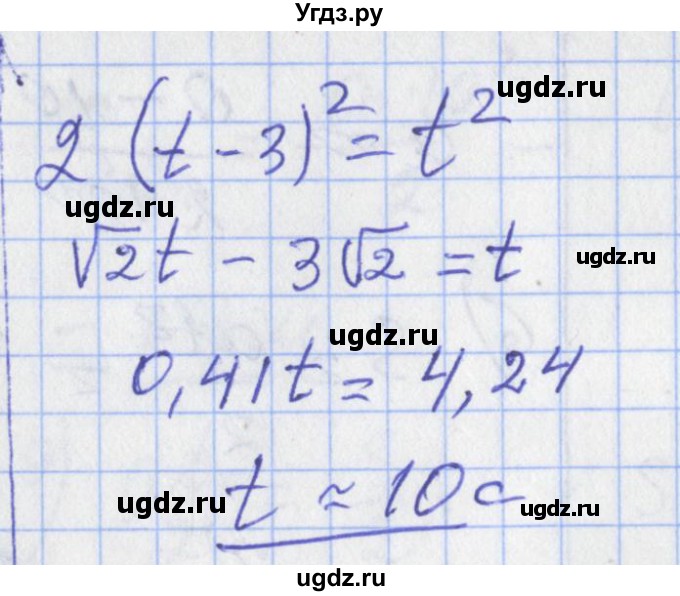 Угдз.ру
ugdz.ru
2 (t - 3)² = t²
ugdz.ru
√2t - 3√2 = t
ugdz.ru
ugdz.ru
0,41t = 4,24
ugdz.ru
t ≈ 10 с
ugdz.ru
ugdz.ru